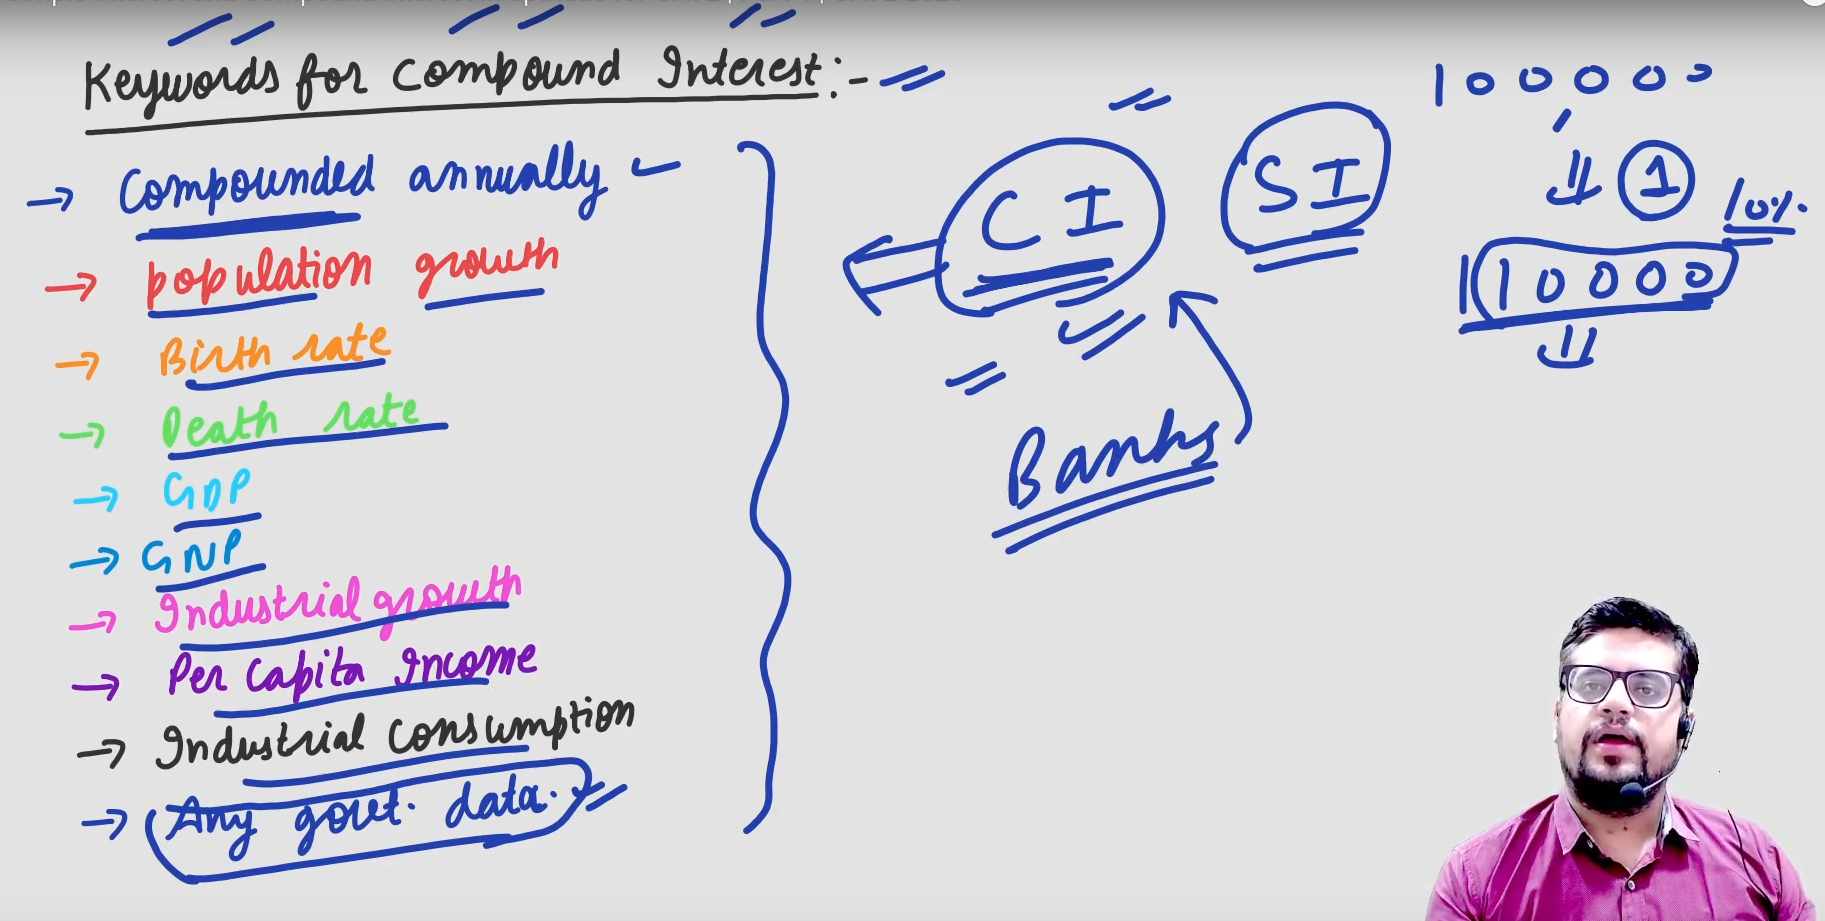 Keywords for Compound Interest:-
→ Compounded annually
→ population growth
→ Birth rate
→ Death rate
→ GDP
→ GNP
→ Industrial growth
→ Per Capita Income
→ Industrial Consumption
→ Any govt. data.
CI
SI
Banks
100000
1
10%
110000